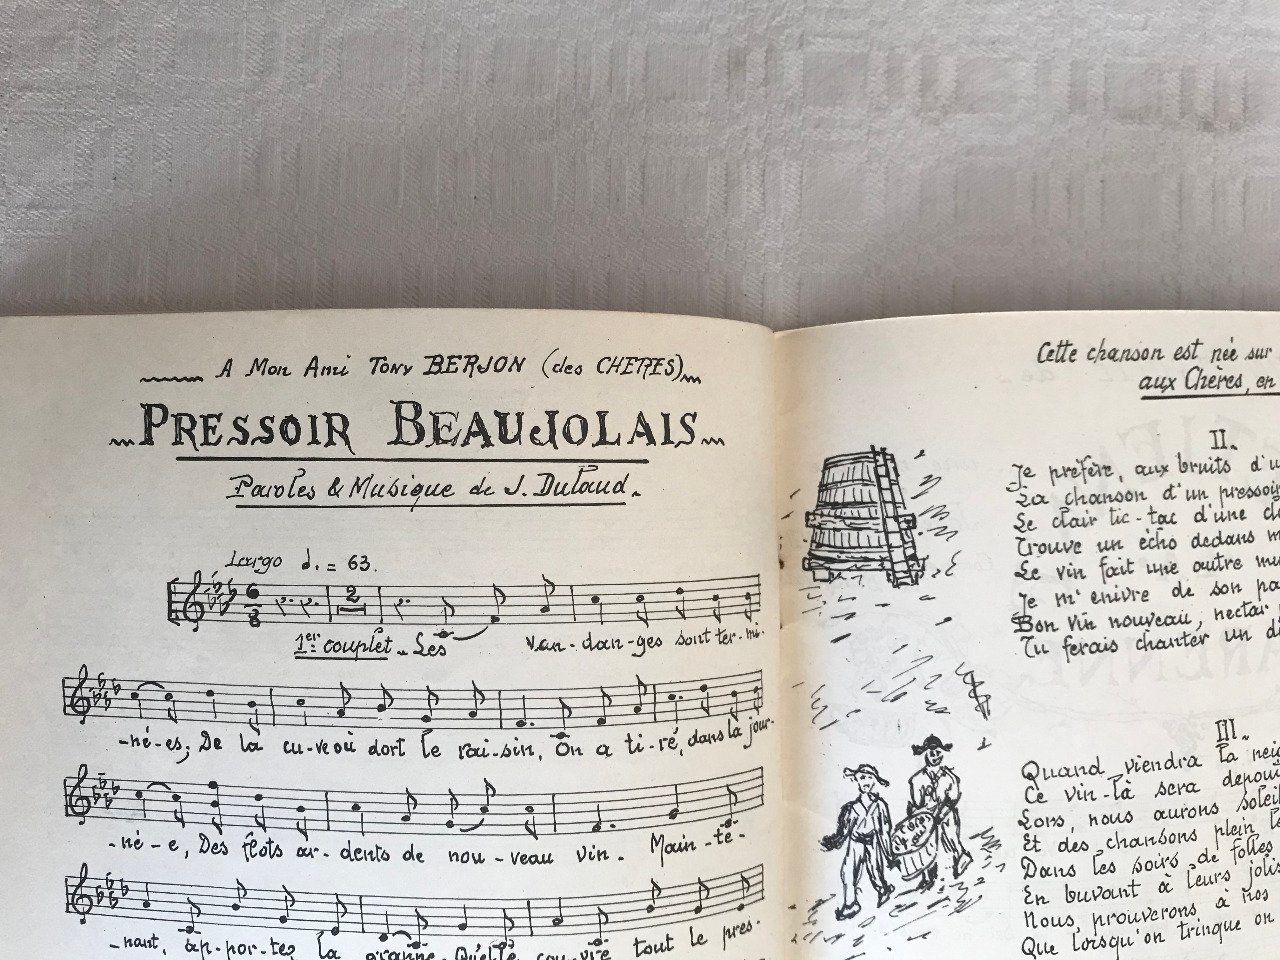 A Mon Ami Tony BERJON (des CHERES)
PRESSOIR BEAUJOLAIS
Paroles & Musique de J. Dutaud.
Largo = 63.
6 8 2
1er couplet - Les van-dan-ges sont ter-mi-
-né-es; De la cu-ve où dort le rai-sin, On a ti-ré, dans la jour-
-né-e, Des flots ar-dents de nou-veau vin. Main-te-
-nant, ap-por-tez la grappe. Qu'elle cou-vre tout le pres-
Cette chanson est née sur
aux Chères, en
II.
Je préfère, aux bruits d'u
La chanson d'un pressoir
Le clair tic-tac d'une
Trouve un écho dedans m
Le vin fait une autre mu
Je m'enivre de son pa
Bon vin nouveau, nectar
Tu ferais chanter un
III.
Quand viendra la nei
Ce vin-là sera
Lors, nous aurons soleil
Et des chansons plein
Dans les soirs de folles
En buvant à leurs jolis
Nous prouverons, à nos
Que lorsqu'on trinque on